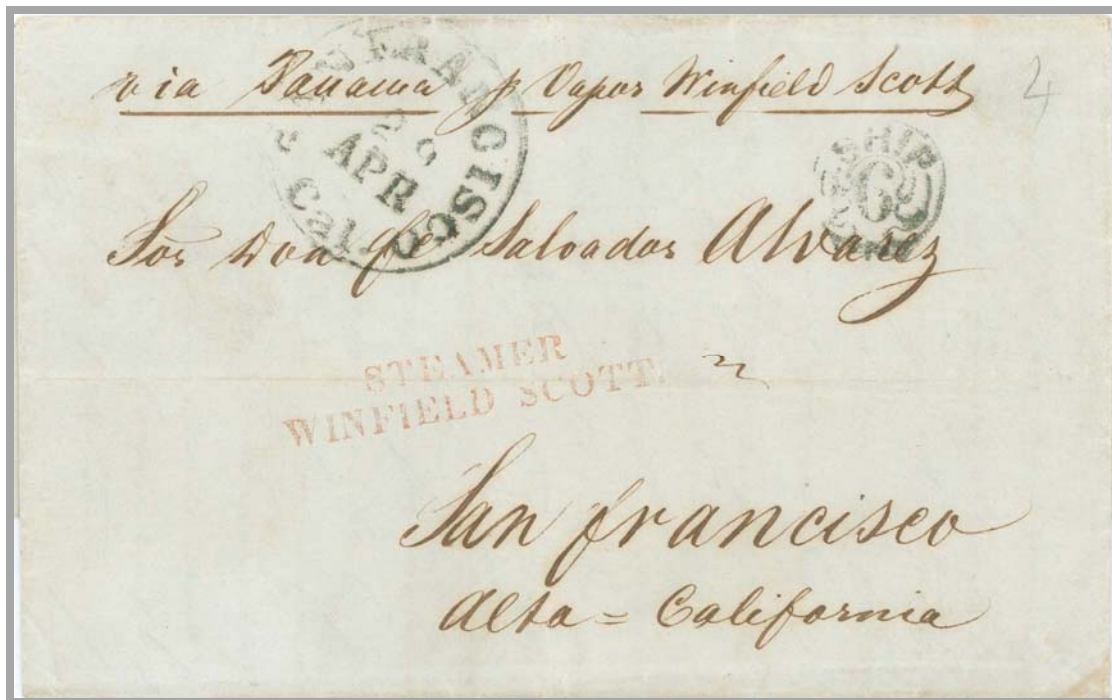 via Panama p Vapor Winfield Scott
4
SAN FRANCISCO
20
APR
Cal.
SHIP
6
Sor Don Salvador Alvarez
STEAMER
WINFIELD SCOTT.
San francisco
Alta = California